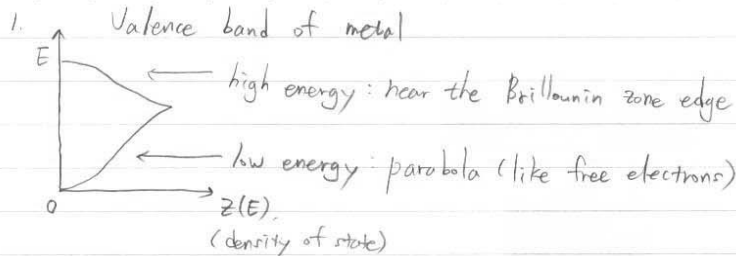 1. Valence band of metal
E
high energy: near the Brillounin zone edge
low energy: parabola (like free electrons)
0
Z(E).
(density of state)